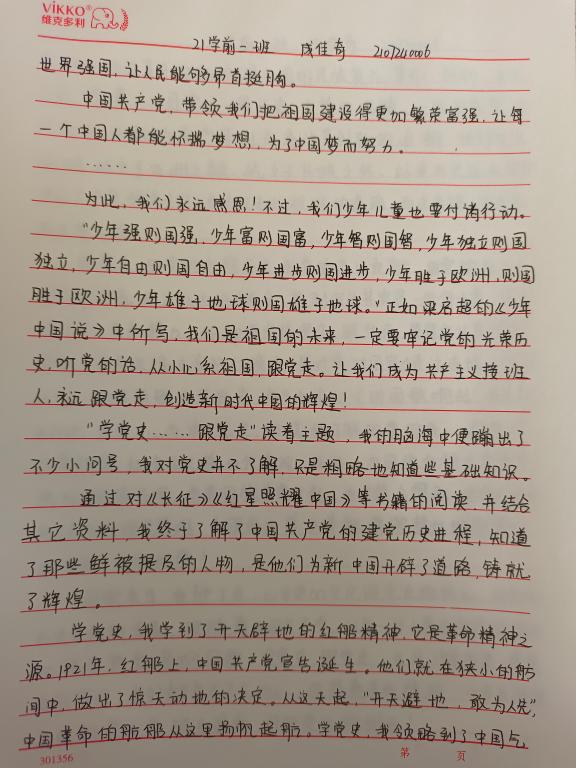 ViKKO®
维克多利
21学前一班 成佳奇 2107240006
世界强国，让人民能够昂首挺胸。
中国共产党，带领我们把祖国建设得更加繁荣富强，让每
一个中国人都能怀揣梦想，为了中国梦而努力。
……
为此，我们永远感恩！不过，我们少年儿童也要付诸行动。
“少年强则国强，少年富则国富，少年智则国智，少年独立则国
独立，少年自由则国自由，少年进步则国进步，少年胜于欧洲，则国
胜于欧洲，少年雄于地球则国雄于地球。”正如梁启超的《少年
中国说》中所写，我们是祖国的未来，一定要牢记党的光荣历
史，听党的话，从小心系祖国，跟党走。让我们成为共产主义接班
人，永远跟党走，创造新时代中国的辉煌！
“学党史……跟党走”读着主题，我的脑海中便蹦出了
不少小问号，我对党史并不了解，只是粗略地知道些基础知识。
通过对《长征》《红星照耀中国》等书籍的阅读，并结合
其它资料，我终于了解了中国共产党的建党历史进程，知道
了那些鲜被提及的人物，是他们为新中国开辟了道路，铸就
了辉煌。
学党史，我学到了开天辟地的红船精神，它是革命精神之
源。1921年，红船上，中国共产党宣告诞生。他们就在狭小的船
间中，做出了惊天动地的决定。从这天起，“开天避地，敢为人先”，
中国革命的航船从这里扬帆起航。学党史，我领略到了中国气
301356
第 页